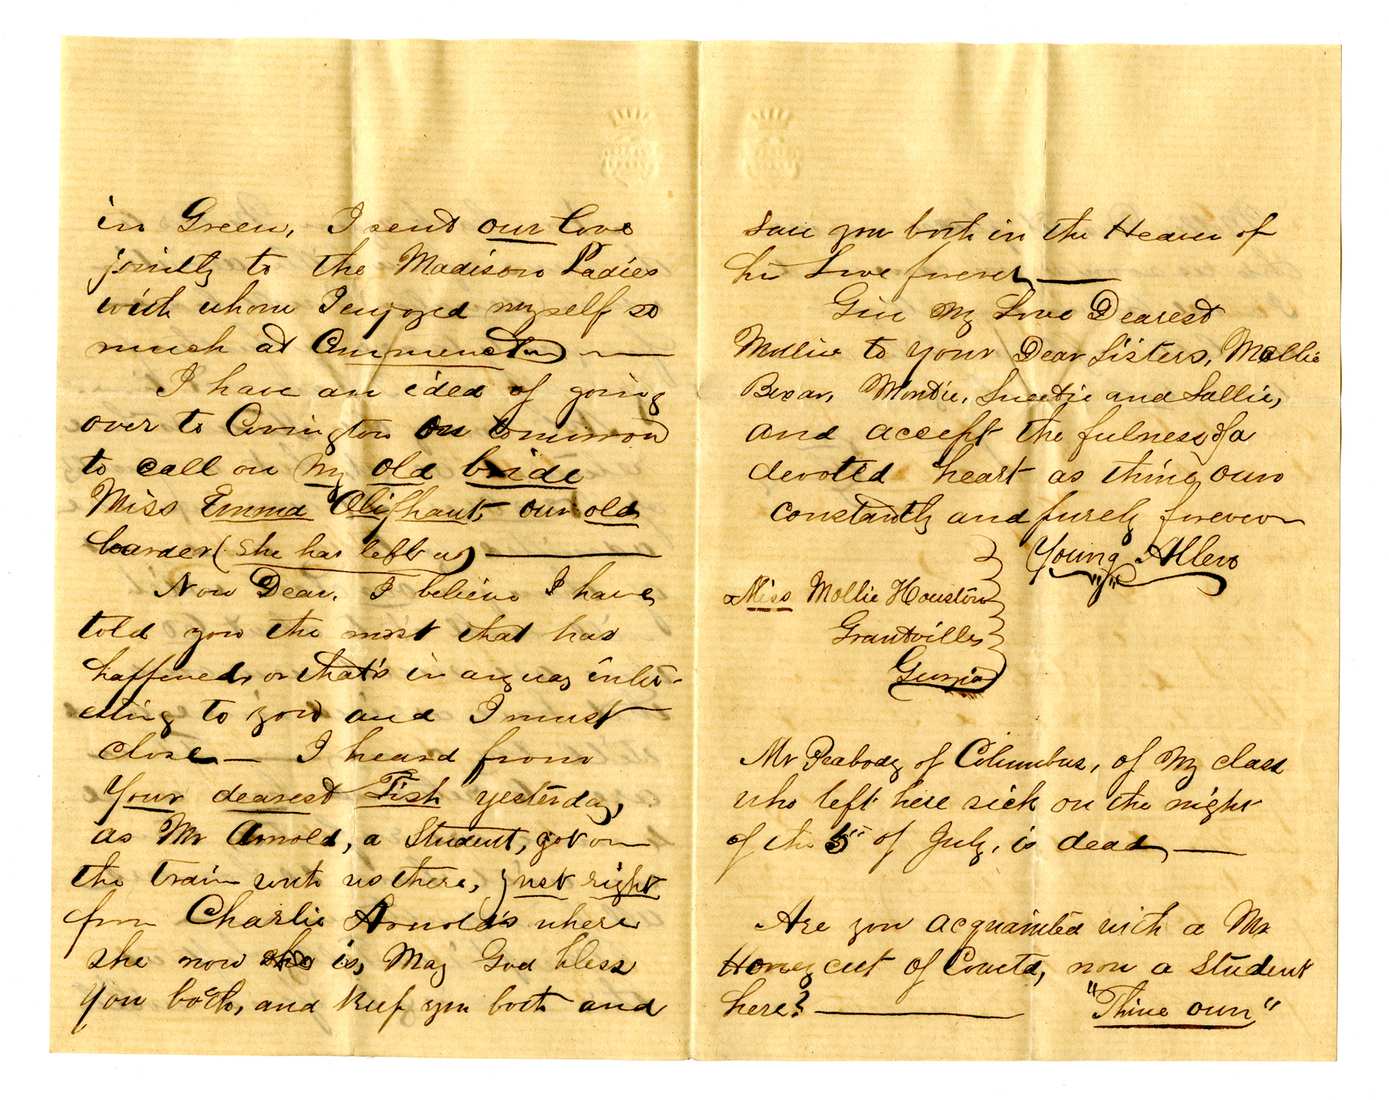 in Green, I sent our love
jointly to the Madison Ladies
with whom I enjoyed myself so
much at Commenct
I have an idea of going
over to Covington on tomorrow
to call on my old bride
Miss Emma Oliphant, our old
boarder (she has left us)
Now Dear, I believe I have
told you the most that has
happened, or that's in anyway inter-
esting to you and I must
close — I heard from
Your dearest Fish yesterday,
as Mr Arnold, a Student, got on
the train with us there, just right
from Charlie Arnold's where
she now is, May God bless
you both, and keep you both and
save you both in the Heaven of
his Love forever —
Give My Love Dearest
Mollie to your Dear Sisters, Mollie
Bexar, Mondie, Sweetie and Sallie,
and accept the fulness of a
devoted heart as thine own
constantly and purely forever
Young Allen
"J"
Miss Mollie Houston
Grantville
Georgia
Mr Peabody of Columbus, of My class
who left here sick on the night
of the 5" of July, is dead —
Are you acquainted with a Mr
Honeycut of Coweta, now a Student
here? — "Thine own"